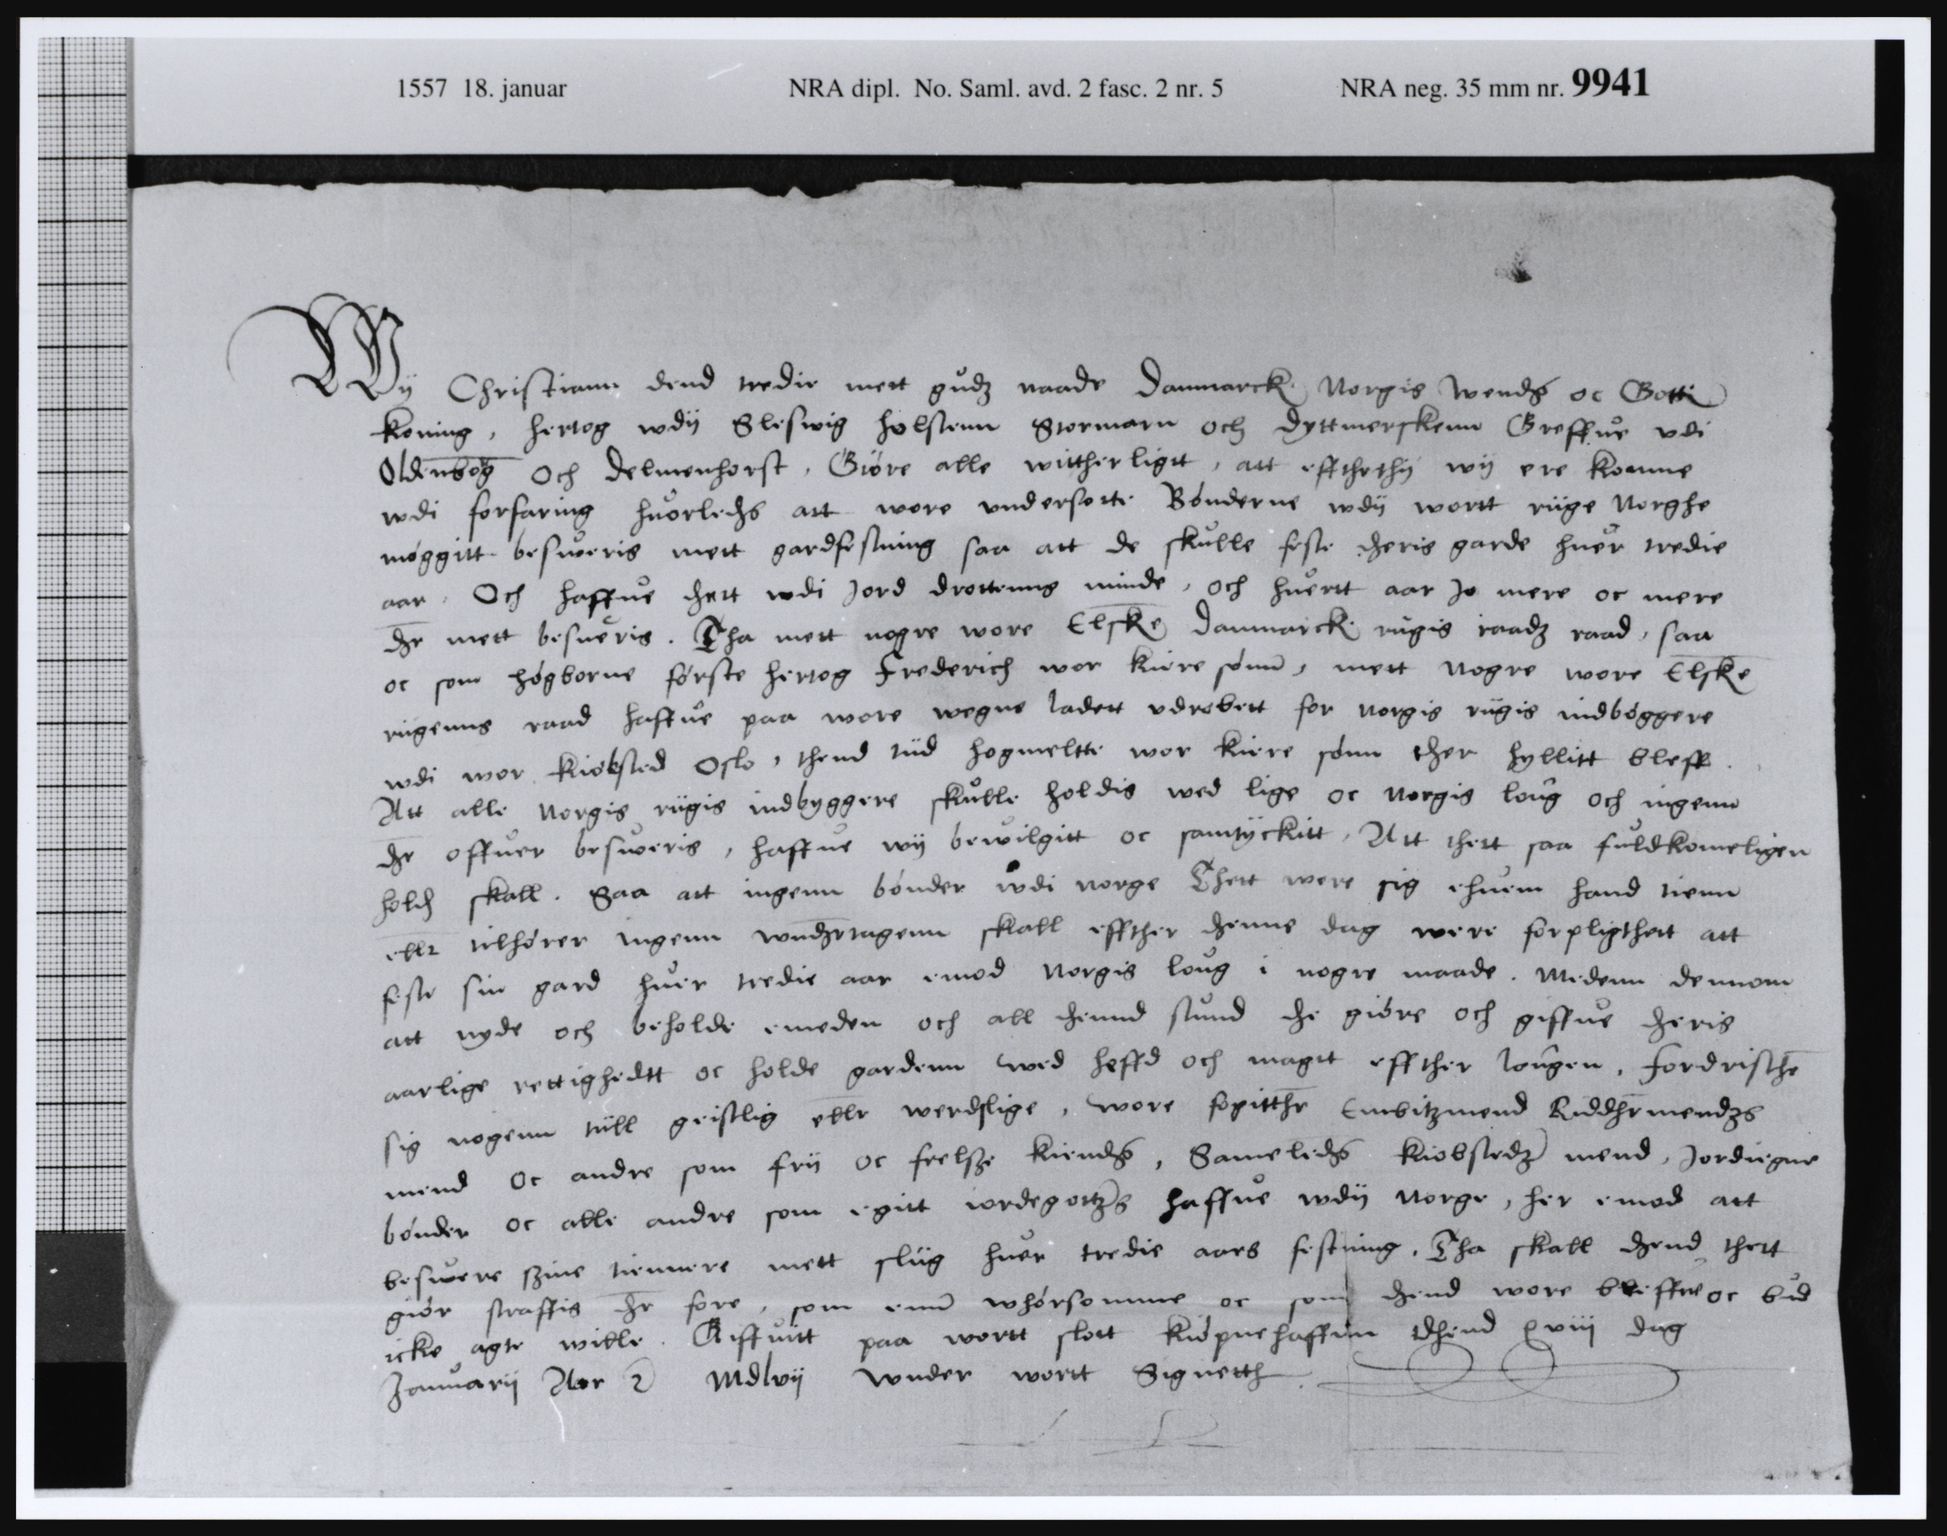 1557 18. januar NRA dipl. No. Saml. avd. 2 fasc. 2 nr. 5 NRA neg. 35 mm nr. 9941
Wij Christiann dend tredie mett gudz naade Danmarck Norgis Wendis oc Gotti
koning, hertog wdij Slesuig holstenn Stormarn och dyttmerskenn Greffue vdi
Oldenbog Och delmenhorst, Giøre alle wittherligtt, att effthethij wij ere komne
wdi forfaring huorledis att wore vndersotte Bønderne wdij wortt riige Norghe
møggitt besweris mett gardfestning saa att de skulle feste theris garde huer tredie
aar. Och haffue thett wdi Jord drottenns minde, och huertt aar Jo mere oc mere
ther mett besueris. Tha mett nogre wore Elske Danmarck rügis raadz raad, saa
oc som høgborne første hertog Frederich wor kiere sønn, mett Nogre wore Elske
riigenns raad haffue paa wore wegne ladett vdrobett for Norgis riigis indbøggere
wdi wor kiøbsted Oslo, thend tiid hogmeltte wor kiere sønn ther hyllitt bleff.
Att alle Norgis riigis indbyggere skulle holdis wed lige oc Norgis loug och ingenn
ther offuer besweris, haffue wij bewilgitt oc samtyckitt, Att thett saa fuldkomeligen
holdis skall. Saa att ingenn bønder wdi norge Thett were sig ehuem hand tienn
eller tilhører ingenn wndertagenn skall effther thenne dag were forpligthett att
feste sin gard huer tredie aar emod Norgis loug i nogre maade. Medenn dennom
att nyde och beholde emeden och all thennd stund the giøre och giffue theris
aarlige rettighedtt oc holde gardenn wed heffd och magtt effther lougen, Fordristhe
sig nogenn tiill geistlig eller werdslige, wore fogitther Embitzmend Ridderemendzs
mend oc andre som frij oc frelsze kiendis, Sameledis kiøbstedz mend, Jordiegne
bønder oc alle andre som egitt iordegottzs haffue wdij Norge, her emod att
beswere szine tiennere mett sliig huer tredie aars festning, Tha skall thend thett
giør straffis ther fore, som enn whørsomme oc som thend wore breffue oc bud
icke agte wille. Giffuitt paa wortt slott kiøpnehaffunn thend xviii dag
Januarij Aar &c MDlvij Wnder wortt Signetth